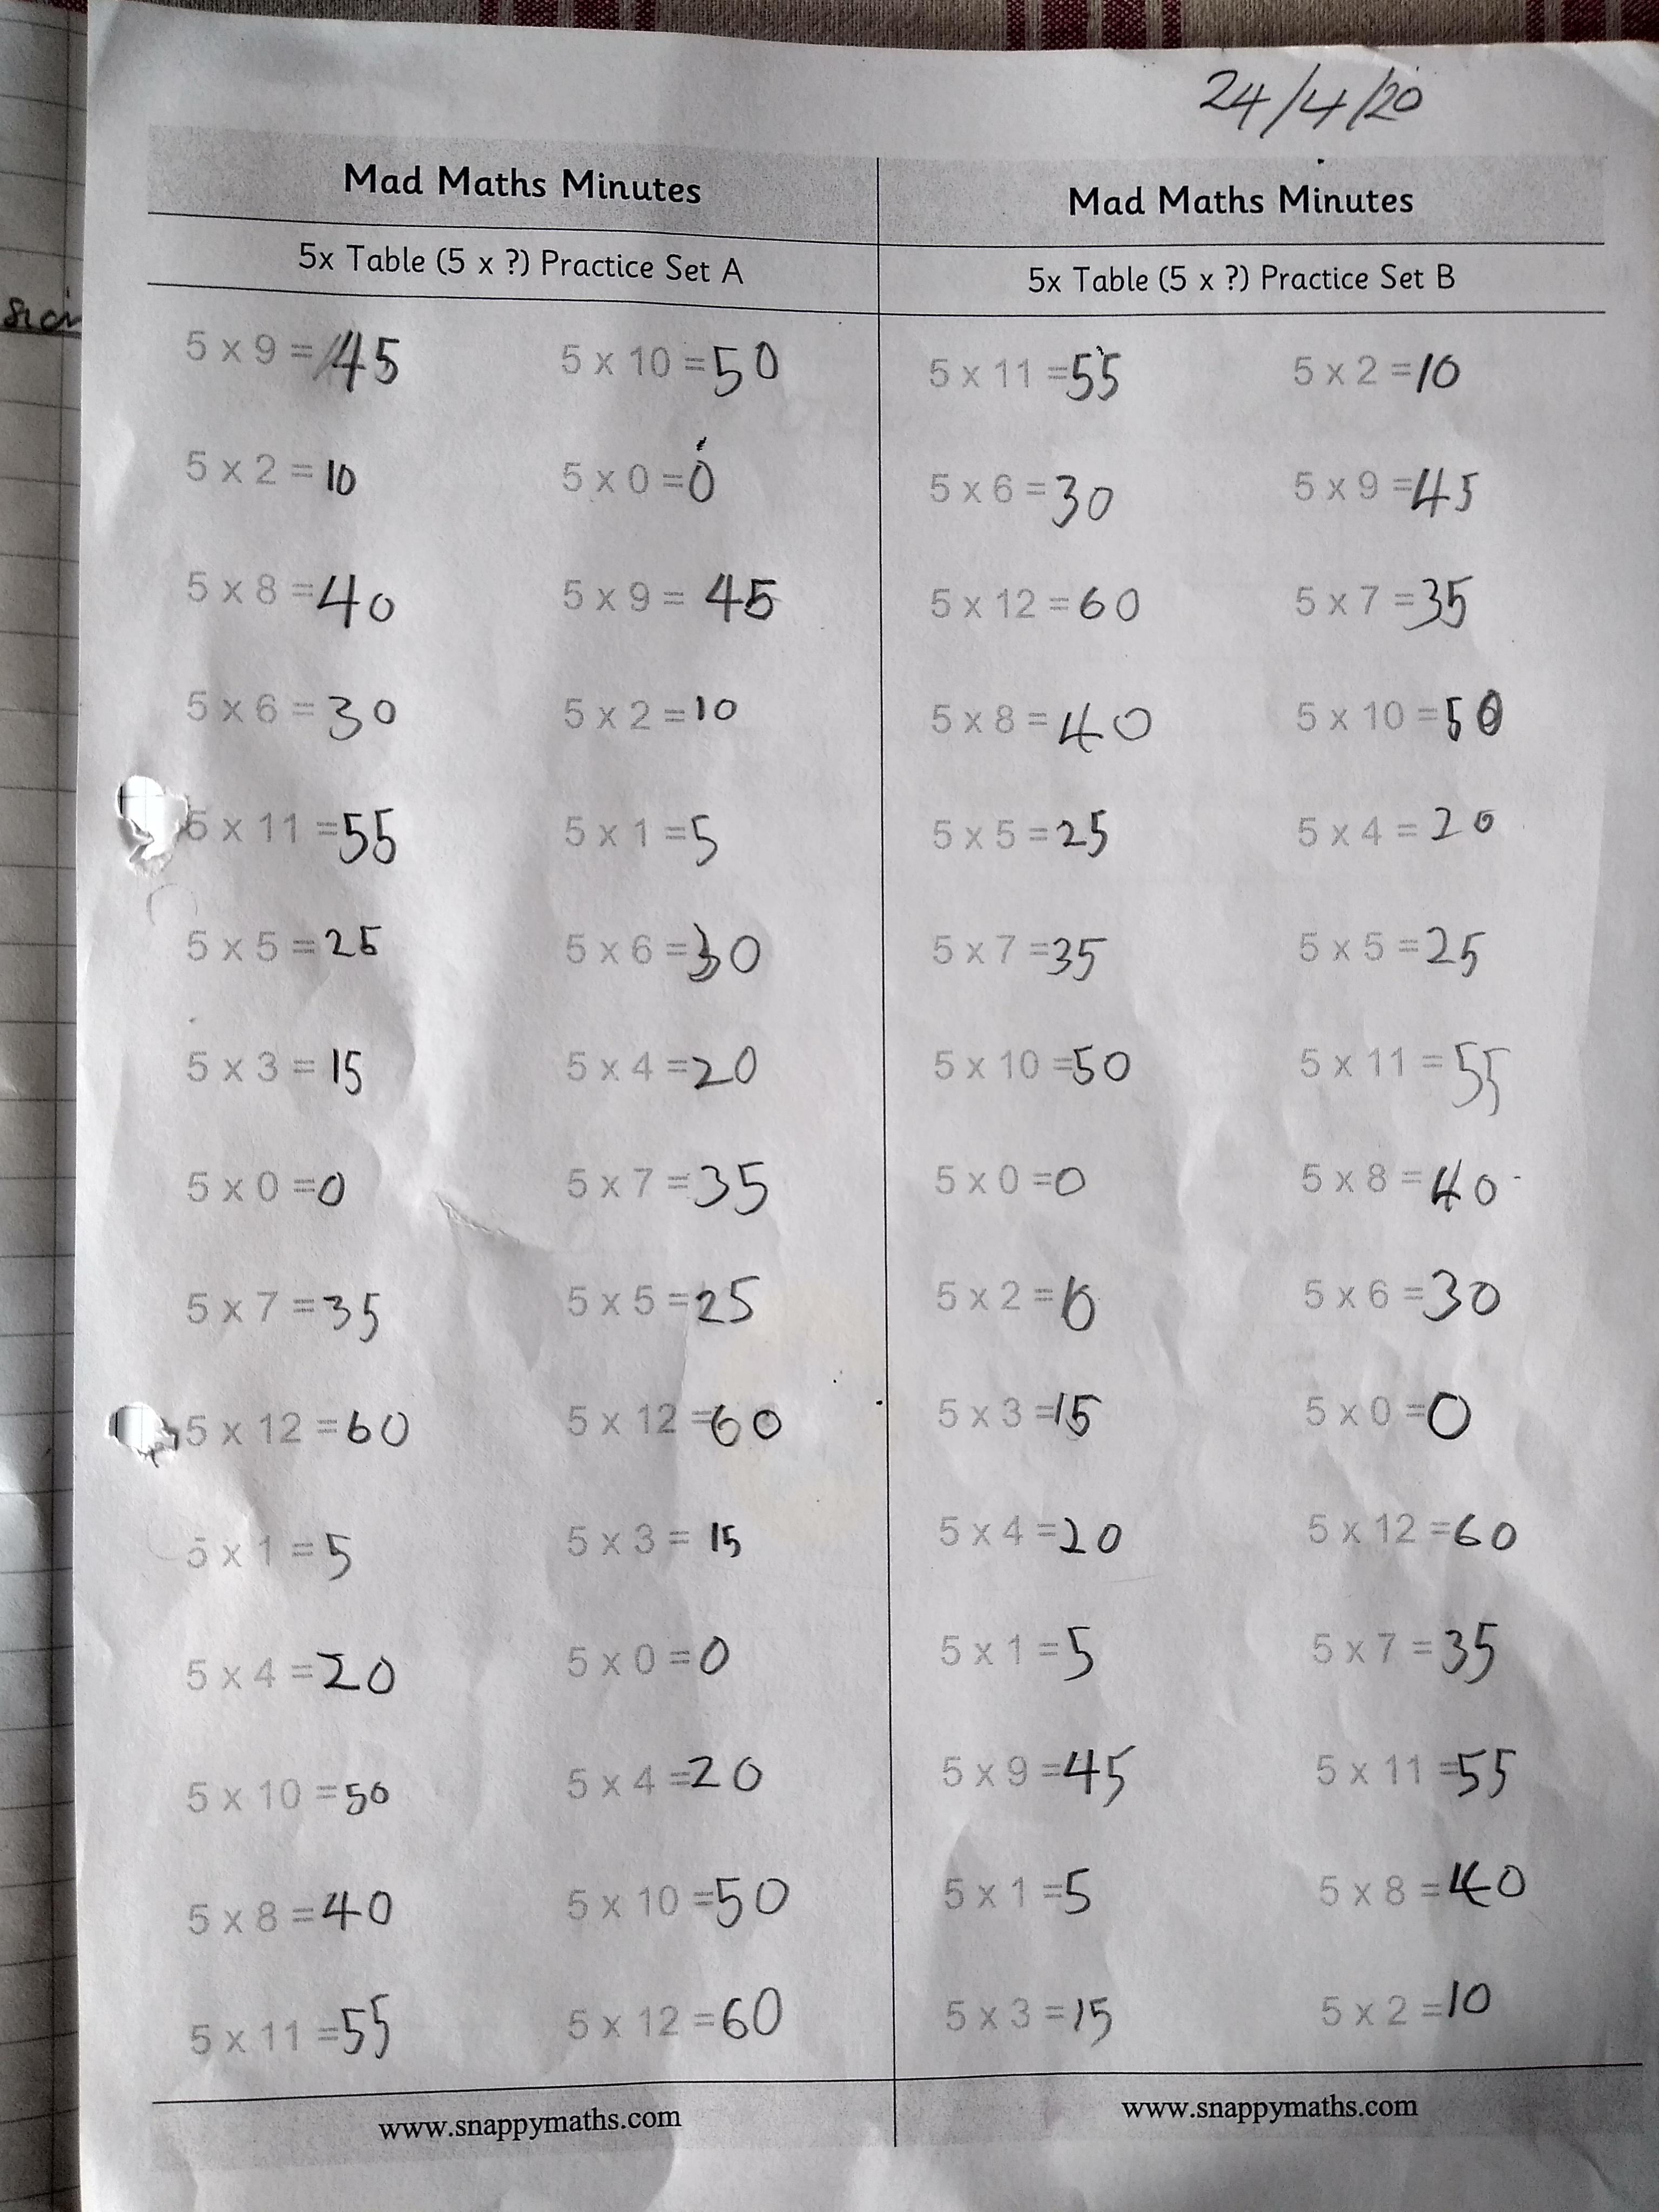 24/4/20
Mad Maths Minutes
5x Table (5 x ?) Practice Set A
5 x 9 = 45 5 x 10 = 50
5 x 2 = 10 5 x 0 = 0
5 x 8 = 40 5 x 9 = 45
5 x 6 = 30 5 x 2 = 10
5 x 11 = 55 5 x 1 = 5
5 x 5 = 25 5 x 6 = 30
5 x 3 = 15 5 x 4 = 20
5 x 0 = 0 5 x 7 = 35
5 x 7 = 35 5 x 5 = 25
5 x 12 = 60 5 x 12 = 60
5 x 1 = 5 5 x 3 = 15
5 x 4 = 20 5 x 0 = 0
5 x 10 = 50 5 x 4 = 20
5 x 8 = 40 5 x 10 = 50
5 x 11 = 55 5 x 12 = 60
www.snappymaths.com
Mad Maths Minutes
5x Table (5 x ?) Practice Set B
5 x 11 = 55 5 x 2 = 10
5 x 6 = 30 5 x 9 = 45
5 x 12 = 60 5 x 7 = 35
5 x 8 = 40 5 x 10 = 50
5 x 5 = 25 5 x 4 = 20
5 x 7 = 35 5 x 5 = 25
5 x 10 = 50 5 x 11 = 55
5 x 0 = 0 5 x 8 = 40
5 x 2 = 10 5 x 6 = 30
5 x 3 = 15 5 x 0 = 0
5 x 4 = 20 5 x 12 = 60
5 x 1 = 5 5 x 7 = 35
5 x 9 = 45 5 x 11 = 55
5 x 1 = 5 5 x 8 = 40
5 x 3 = 15 5 x 2 = 10
www.snappymaths.com